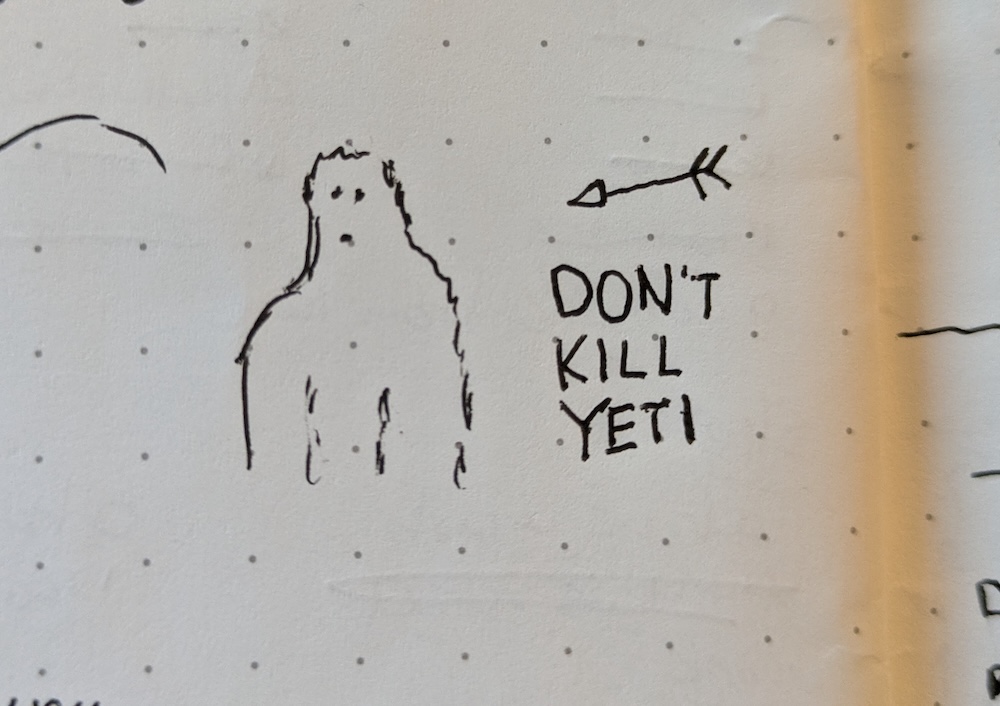 DON'T
KILL
YETI